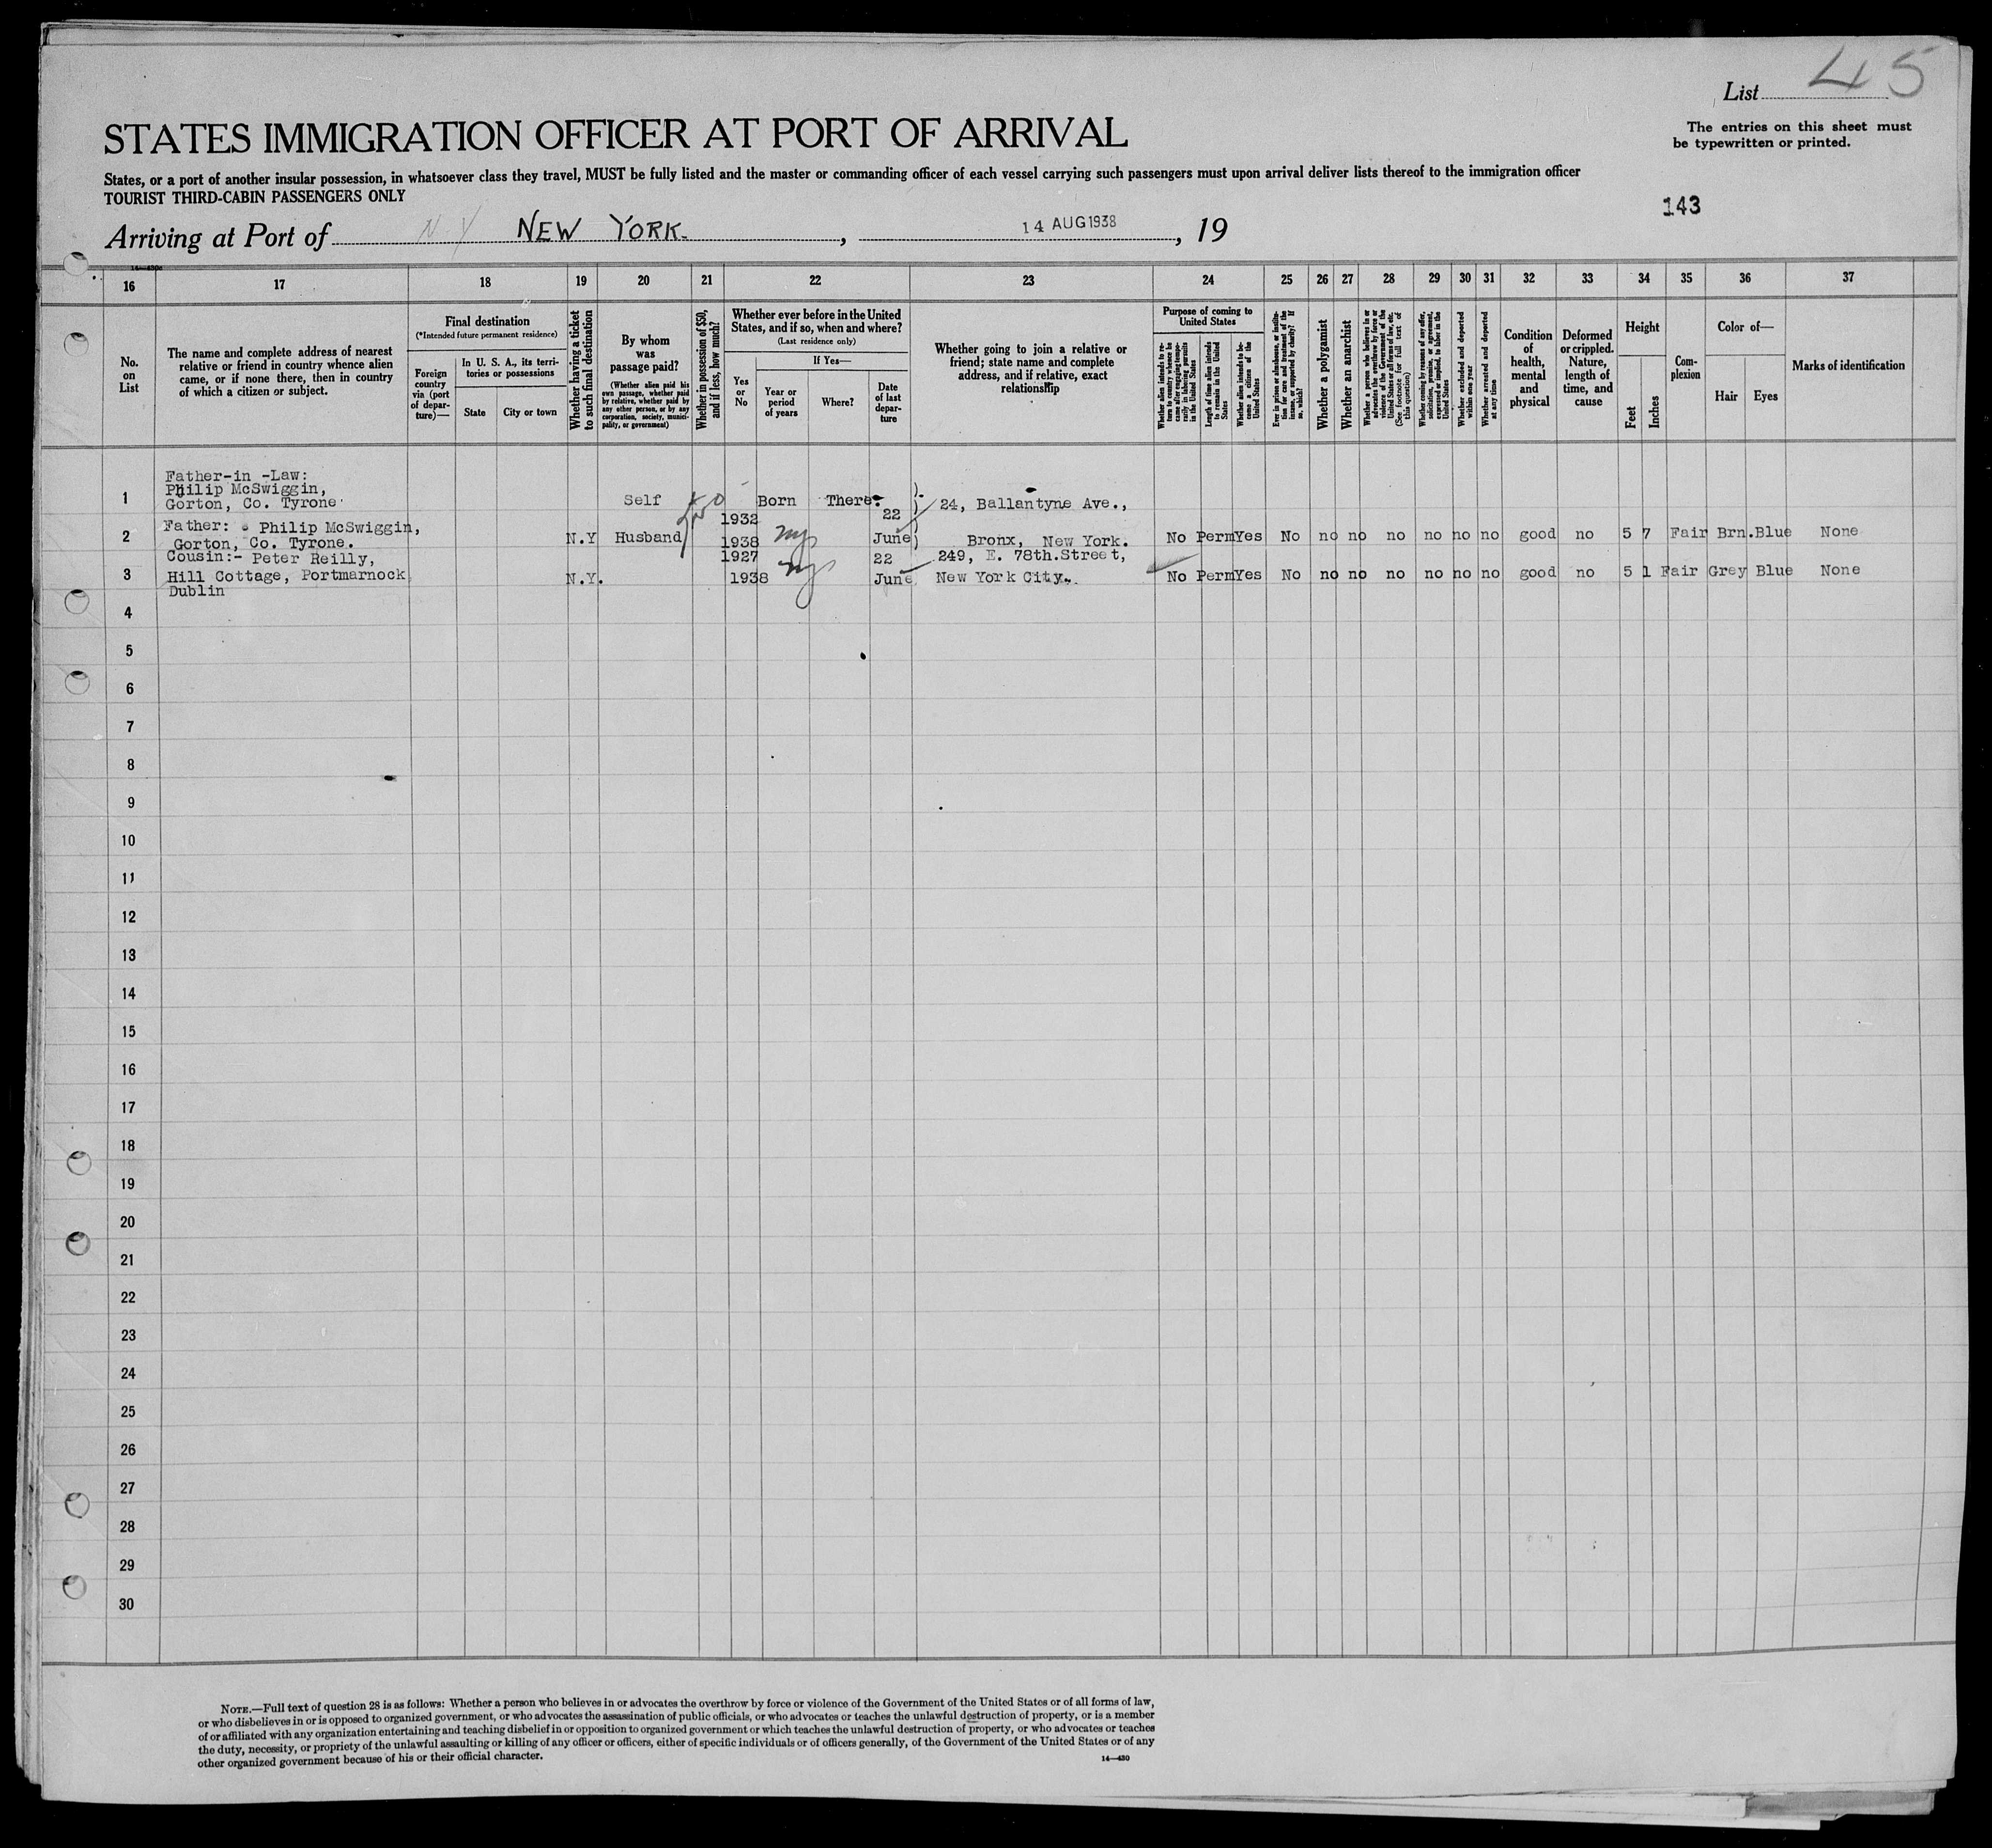 List 45
The entries on this sheet must
be typewritten or printed.
STATES IMMIGRATION OFFICER AT PORT OF ARRIVAL
States, or a port of another insular possession, in whatsoever class they travel, MUST be fully listed and the master or commanding officer of each vessel carrying such passengers must upon arrival deliver lists thereof to the immigration officer
TOURIST THIRD-CABIN PASSENGERS ONLY
143
Arriving at Port of N Y NEW YORK. , 14 AUG 1938 , 19
16 17 18 19 20 21 22 23 24 25 26 27 28 29 30 31 32 33 34 35 36 37
No.
on
List
The name and complete address of nearest
relative or friend in country whence alien
came, or if none there, then in country
of which a citizen or subject.
Final destination
(*Intended future permanent residence)
Foreign
country
via (port
of depar-
ture)—
In U. S. A., its terri-
tories or possessions
State
City or town
Whether having a ticket
to such final destination
By whom
was
passage paid?
(Whether alien paid his
own passage, whether paid
by relative, whether paid by
any other person, or by any
corporation, society, munici-
pality, or government)
Whether in possession of $50,
and if less, how much?
Whether ever before in the United
States, and if so, when and where?
(Last residence only)
Yes
or
No
If Yes—
Year or
period
of years
Where?
Date
of last
depar-
ture
Whether going to join a relative or
friend; state name and complete
address, and if relative, exact
relationship
Purpose of coming to
United States
Whether alien intends to re-
turn to country whence he
came after engaging tempo-
rarily in laboring pursuits
in the United States
Length of time alien intends
to remain in the United
States
Whether alien intends to be-
come a citizen of the
United States
Ever in prison or almshouse, or institu-
tion for care and treatment of the
insane, or supported by charity? If
so, which?
Whether a polygamist
Whether an anarchist
Whether a person who believes in or
advocates the overthrow by force or
violence of the Government of the
United States or all forms of law, etc.
(See footnote for full text of
this question)
Whether coming by reasons of any offer,
solicitation, promise, or agreement,
expressed or implied, to labor in the
United States
Whether excluded and deported
within one year
Whether arrested and deported
at any time
Condition
of
health,
mental
and
physical
Deformed
or crippled.
Nature,
length of
time, and
cause
Height
Feet
Inches
Com-
plexion
Color of—
Hair
Eyes
Marks of identification
Father-in -Law:
Philip McSwiggin,
1 Gorton, Co. Tyrone Self 50 Born There. 24, Ballantyne Ave.,
Father: Philip McSwiggin, 1932 22
2 Gorton, Co. Tyrone. N.Y Husband 1938 ny June Bronx, New York. No Perm Yes No no no no no no no good no 5 7 Fair Brn. Blue None
Cousin:- Peter Reilly, 1927 22 249, E. 78th.Street,
3 Hill Cottage, Portmarnock N.Y. 1938 ny June New York City. No Perm Yes No no no no no no no good no 5 1 Fair Grey Blue None
Dublin
4
5
6
7
8
9
10
11
12
13
14
15
16
17
18
19
20
21
22
23
24
25
26
27
28
29
30
NOTE.—Full text of question 28 is as follows: Whether a person who believes in or advocates the overthrow by force or violence of the Government of the United States or of all forms of law,
or who disbelieves in or is opposed to organized government, or who advocates the assassination of public officials, or who advocates or teaches the unlawful destruction of property, or is a member
of or affiliated with any organization entertaining and teaching disbelief in or opposition to organized government or which teaches the unlawful destruction of property, or who advocates or teaches
the duty, necessity, or propriety of the unlawful assaulting or killing of any officer or officers, either of specific individuals or of officers generally, of the Government of the United States or of any
other organized government because of his or their official character.
14—430